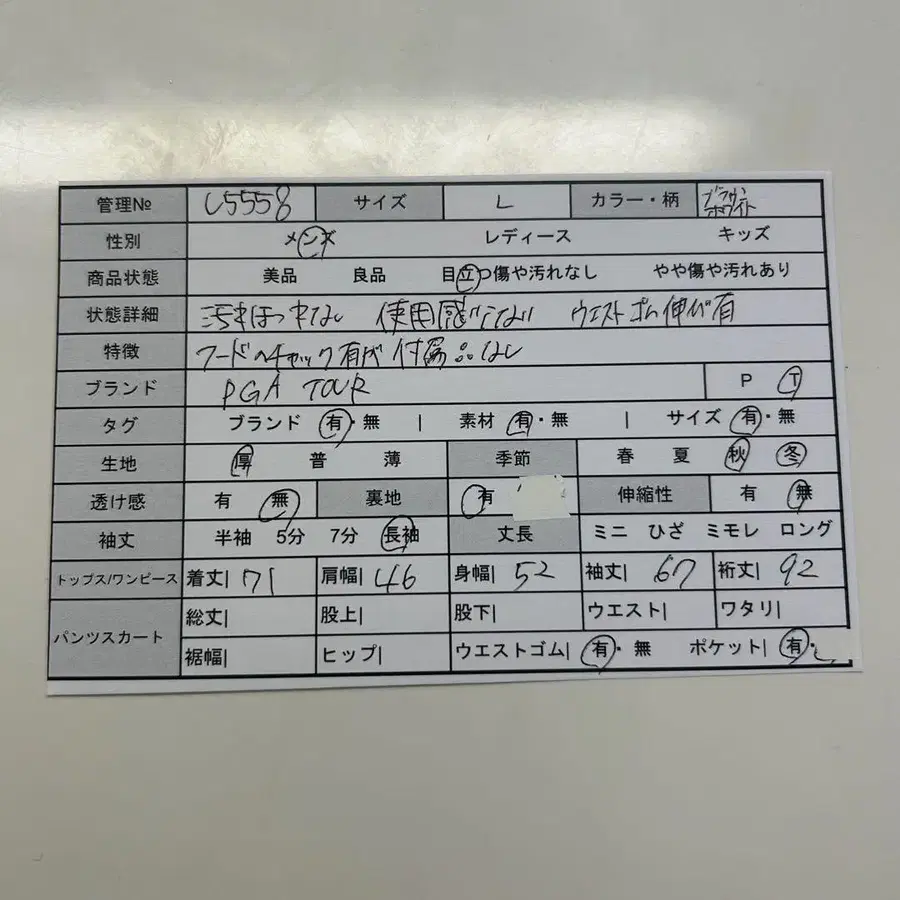 管理№ L5558 サイズ L カラー・柄 ブラウン ホワイト
性別 メンズ レディース キッズ
商品状態 美品 良品 目立つ傷や汚れなし やや傷や汚れあり
状態詳細 使用感 ウエストゴム伸び有
特徴 フード 有 付属品なし
ブランド PGA TOUR P T
タグ ブランド 有・無 | 素材 有・無 | サイズ 有・無
生地 厚 普 薄 季節 春 夏 秋 冬
透け感 有 無 裏地 有 伸縮性 有 無
袖丈 半袖 5分 7分 長袖 丈長 ミニ ひざ ミモレ ロング
トップス/ワンピース 着丈| 71 肩幅| 46 身幅| 52 袖丈| 67 裄丈| 92
パンツスカート 総丈| 股上| 股下| ウエスト| ワタリ|
裾幅| ヒップ| ウエストゴム| 有・無 ポケット| 有・